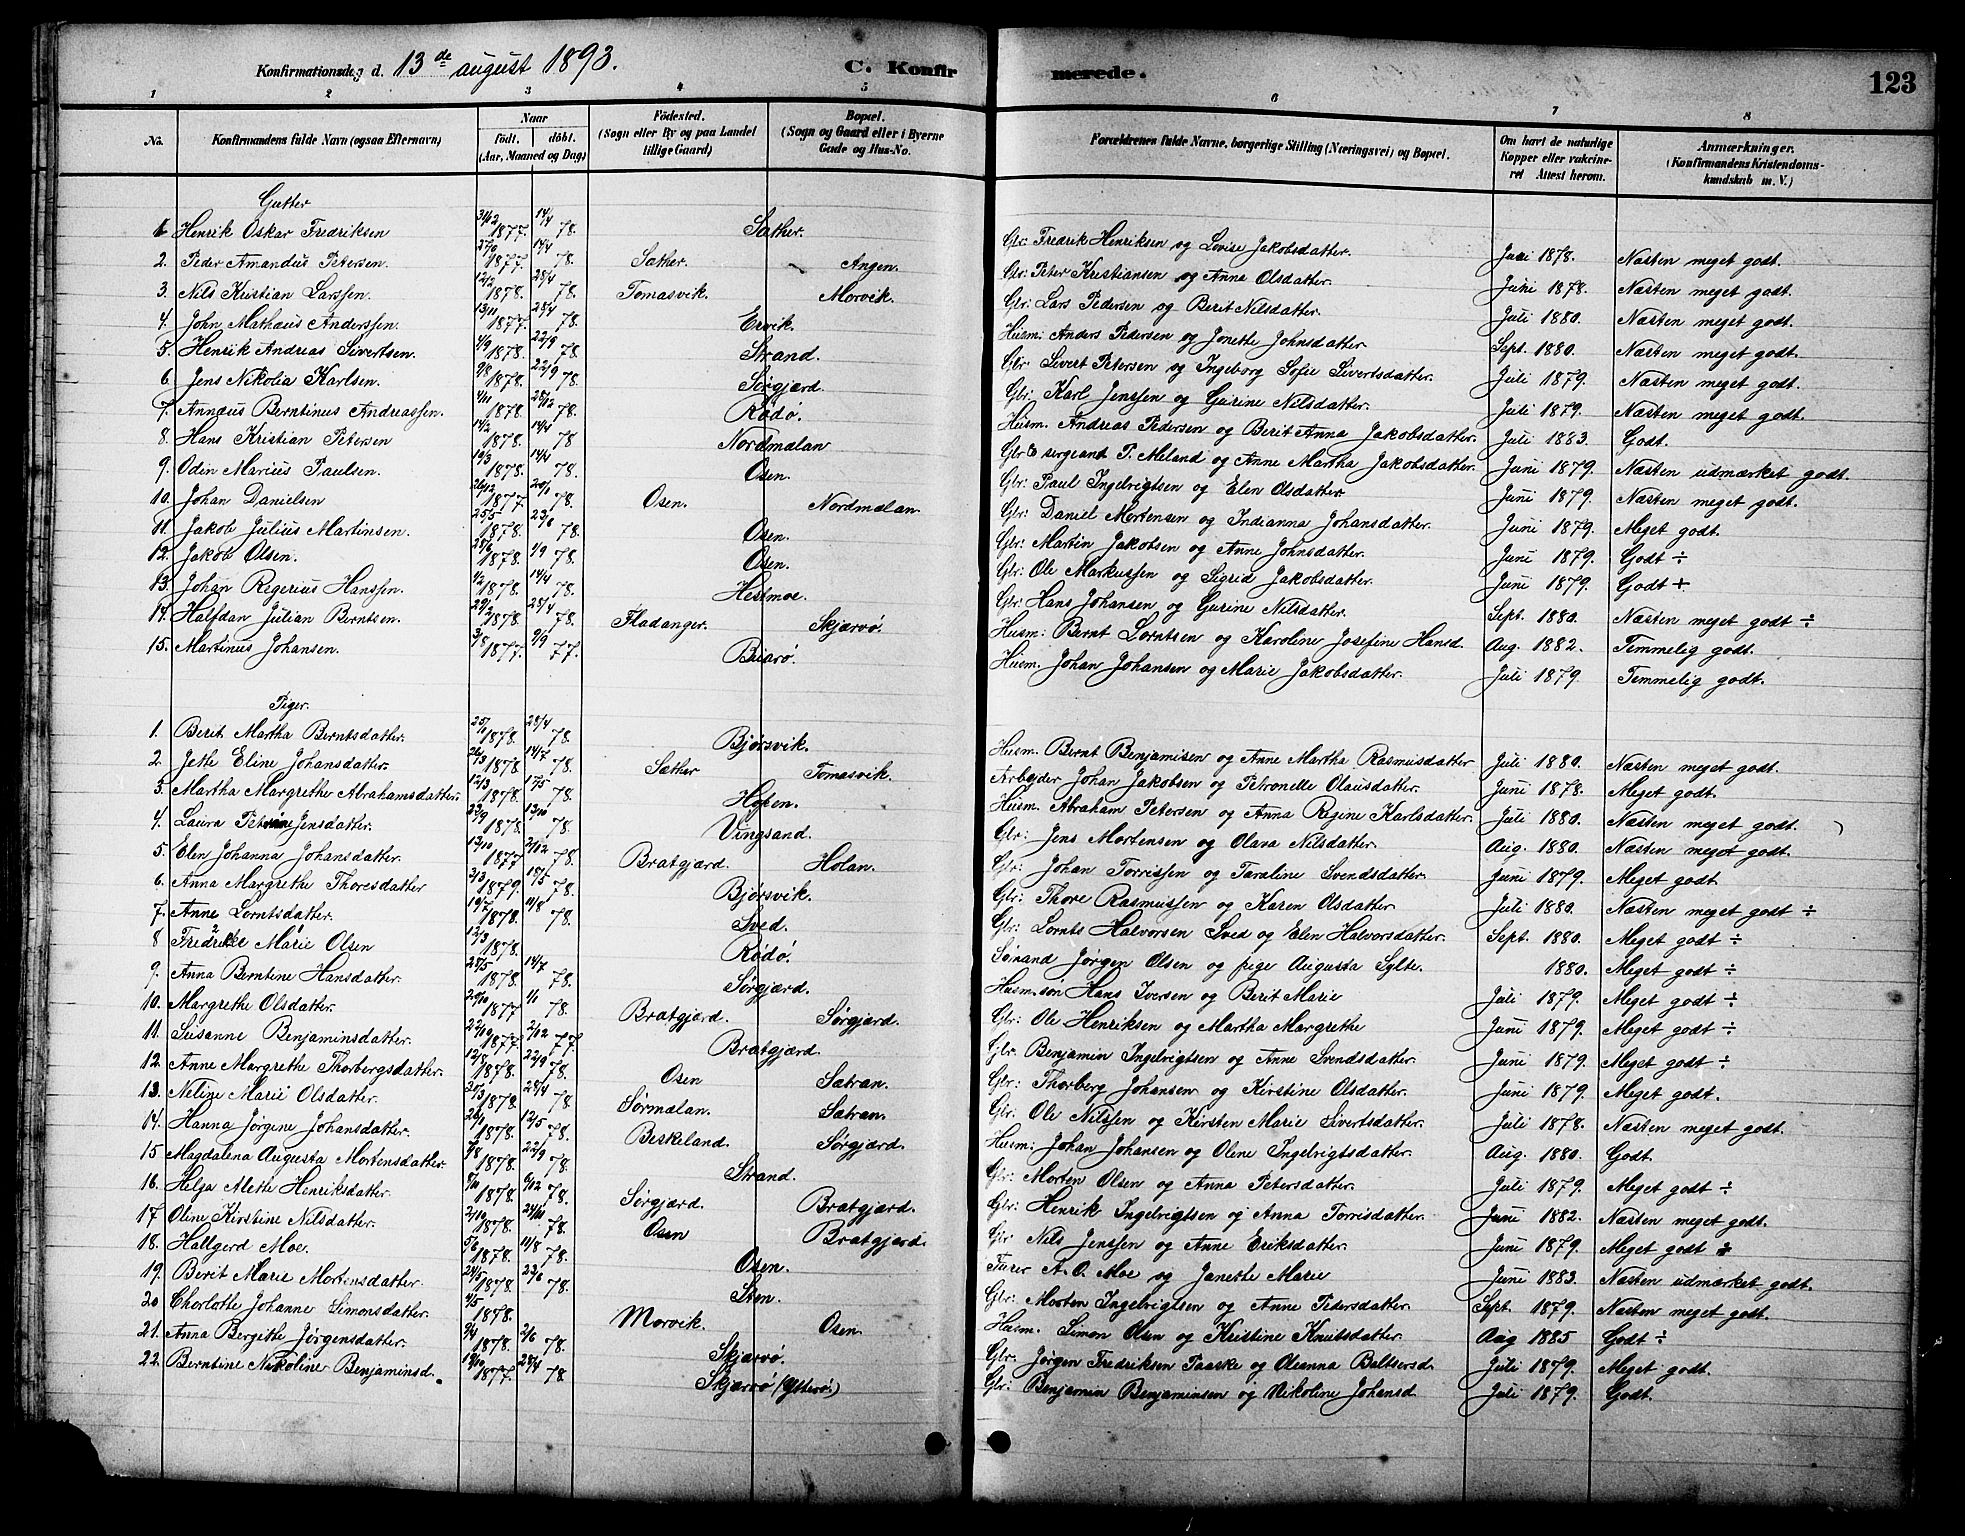 Konfirmationsdag d. 13de august 1893.
C. Konfirmerede.
123
1 2 3 4 5 6 7 8
No.
Konfirmandens fulde Navn (ogsaa Efternavn)
Naar
födt. döbt.
(Aar, Maaned og Dag)
Födested.
(Sogn eller By og paa Landet
tillige Gaard)
Bopæl.
(Sogn og Gaard eller i Byerne
Gade og Hus-No.
Forældrenes fulde Navne, borgerlige Stilling (Næringsvei) og Bopæl.
Om havt de naturlige
Kopper eller vakcine-
ret Attest herom.
Anmærkninger.
(Konfirmandens Kristendoms-
kundskab m. V.)
Gutter
1 Henrik Oskar Fredriksen 1877. 14/4 78. Sæther. Gbr: Fredrik Henriksen og Lovise Jakobsdatter. Juni 1878. Næsten meget godt.
2. Peder Amandus Petersen. 1877. 14/4 78. Sæther. Angen. Gbr: Peter Kristiansen og Anna Olsdatter. Juni 1878. Næsten meget godt.
3. Nils Kristian Larssen. 12/2 1878. 28/4 78. Tomasvik. Morvik. Gbr: Lars Pedersen og Berit Nilsdatter. Juli 1880. Næsten meget godt.
4. John Mathæus Anderssen. 13/11 1877. 28/4 78. Ervik. Husm: Anders Pedersen og Jonette Johnsdatter. Sept. 1880. Næsten meget godt.
5. Henrik Andreas Sivertsen. 1878. 22/9 78. Strand. Gbr: Sivert Petersen og Ingeborg Sofie Sivertsdatter. Juli 1879. Næsten meget godt.
6. Jens Nikolia Karlsen. 1878. 22/9 78. Sørgjærd. Gbr: Karl Jenssen og Gurine Nilsdatter. Juli 1879. Næsten meget godt.
7. Annæus Berntinus Andreassen. 1878. 28/12 78. Rødø. Husm. Andreas Pedersen og Berit Anna Jakobsdatter. Juli 1883. Godt.
8. Hans Kristian Petersen 14/2 1878. 14/4 78 Nordmælan Gbr & sergeant P. Meland og Anne Martha Jakobsdatter. Juni 1879. Næsten udmærket godt.
9. Odin Marius Paulsen. 1878. 14/4 78. Osen. Gbr: Paul Ingelvigtsen og Elen Olsdatter Juni 1879. Næsten meget godt.
10. Johan Danielsen 26/12 1877. 20/1 78. Osen. Nordmælan. Gbr: Daniel Mortensen og Indianna Johansdatter. Juni 1879. Meget godt.
11. Jakob Julius Martinsen. 25/5 1878. 23/6 78. Osen. Gbr: Martin Jakobsen og Anne Johnsdatter. Juni 1879. Godt ÷
12. Jakob Olsen. 1878. 1/9 78. Osen. Gbr: Ole Markussen og Sigrid Jakobsdatter. Juni 1879. Godt +
13. Johan Regerius Hanssen. 1878. 14/4 78. Hestmoe. Gbr: Hans Johansen og Gurine Nilsdatter. Sept. 1880. Næsten meget godt ÷
14. Halfdan Julian Berntsen. 1878. 28/4 78. Fladanger. Skjærvø. Husm: Bernt Lorntsen og Karoline Josefine Hansd. Aug. 1882. Temmelig godt.
15. Martinus Johansen. 3/8 1877. 9/9 77. Buarø. Husm. Johan Johansen og Marie Jakobsdatter. Juli 1879. Temmelig godt.
Piger.
1. Berit Martha Berntsdatter. 25/1 1878. 28/4 78. Bjørsvik. Husm. Bernt Benjamisen og Anne Martha Rasmusdatter Juli 1880. Næsten meget godt.
2. Jette Eline Johansdatter. 26/3 1878 14/7 78. Sæther Tomasvik. Arbejder Johan Jakobsen og Petronelle Olausdatter. Juni 1878. Meget godt.
3. Martha Margrethe Abrahamsdatter. 12/3 1878. 17/5 78. Hopen. Husm. Abraham Petersen og Anna Regine Karlsdatter. Juli 1880. Næsten meget godt.
4. Laura Petrine Jensdatter. 23/9 1878. 13/10 78. Vingsand. Gbr: Jens Mortensen og Olava Nilsdatter. Aug. 1880. Næsten meget godt.
5. Elen Johanna Johansdatter. 13/10 1877 2/12 78. Bratgjærd. Holan. Gbr: Johan Torrissen og Taraline Svendsdatter. Juni 1879. Meget godt.
6. Anna Margrethe Thoresdatter 1879. 78. Bjørsvik. Gbr: Thore Rasmussen og Karen Olsdatter Juli 1880. Næsten meget godt ÷
7. Anne Lorntsdatter. 1878. 11/8 78. Sved. Gbr: Lornts Halvorsen Sved og Elen Halvorsdatter. Sept. 1880. Meget godt ÷
8 Fredrikke Marie Olsen 12/3 1878. Rødø. Sømand Jørgen Olsen og pige Augusta Sylte. 1880. Meget godt ÷
9. Anna Berntine Hansdatter. 28/5 1878. 14/7 78. Sørgjærd. Husm.søn Hans Iversen og Berit Marie Juli 1879. Meget godt ÷
10. Margrethe Olsdatter. 1877 1/1 78. Bratgjærd. Sørgjærd. Gbr: Ole Henriksen og Martha Margrethe Juni 1879. Meget godt ÷
11. Susanne Benjaminsdatter. 22/10 1877. 2/12 77. Bratgjærd. Gbr. Benjamin Ingelvigtsen og Anne Svendsdatter. Juni 1879. Meget godt ÷
12. Anne Margrethe Thorbergsdatter. 12/8 1878. 22/9 78. Osen Sætran. Gbr: Thorberg Johansen og Kirstine Olsdatter. Juni 1879. Meget godt.
13. Neline Marie Olsdatter. 1878. 28/4 78. Sørmælan. Sætran. Gbr: Ole Nilssen og Kirsten Marie Sivertsdatter. Juli 1878. Næsten meget godt.
14. Hanna Jørgine Johansdatter. 26/1 1878. 12/5 78. Beskeland. Sørgjærd. Husm: Johan Johansen og Oline Ingelvigtsdatter. Aug. 1880. Godt.
15 Magdalena Augusta Mortensdatter. 1878. 22/9 78. Strand. Gbr: Morten Olsen og Anna Petersdatter. Juli 1879. Meget godt ÷
16. Helga Mette Henriksdatter. 1878. 78. Sørgjærd. Bratgjærd. Gbr: Henrik Ingelvigtsen og Anna Torrisdatter. Juni 1882. Næsten meget godt.
17. Oline Kirstine Nilsdatter. 2/10 1878. 24/11 78. Osen Bratgjærd. Gbr Nils Jenssen og Anne Eriksdatter. Juni 1879. Meget godt ÷
18. Hallgerd Moe. 5/6 1878. 11/8 78. Osen. A. O. Moe og Janette Marie Juni 1883. Næsten udmærket godt.
19. Berit Marie Mortensdatter. 24/5 1878. 23/6 78. Sten. Gbr: Morten Ingelvigtsen og Anne Pedersdatter. Sept. 1879. Næsten meget godt.
20 Chorlotte Johanne Simonsdatter. 4/5 1878. Morvik. Osen. Husm. Simon Olsen og Kristine Knutsdatter. Aug 1885 Godt ÷
21. Anna Bergithe Jørgensdatter. 1878. 2/6 78. Skjærvø. Gbr. Jørgen Fredriksen Paaske og Oleanna Baltsersd. Juli 1879. Meget godt.
22. Berntine Nikoline Benjaminsd. 1877. 28/4 78. Skjærvø (Ytterø.) Gbr: Benjamin Benjaminsen og Nikoline Johansd. Juli 1879. Godt.